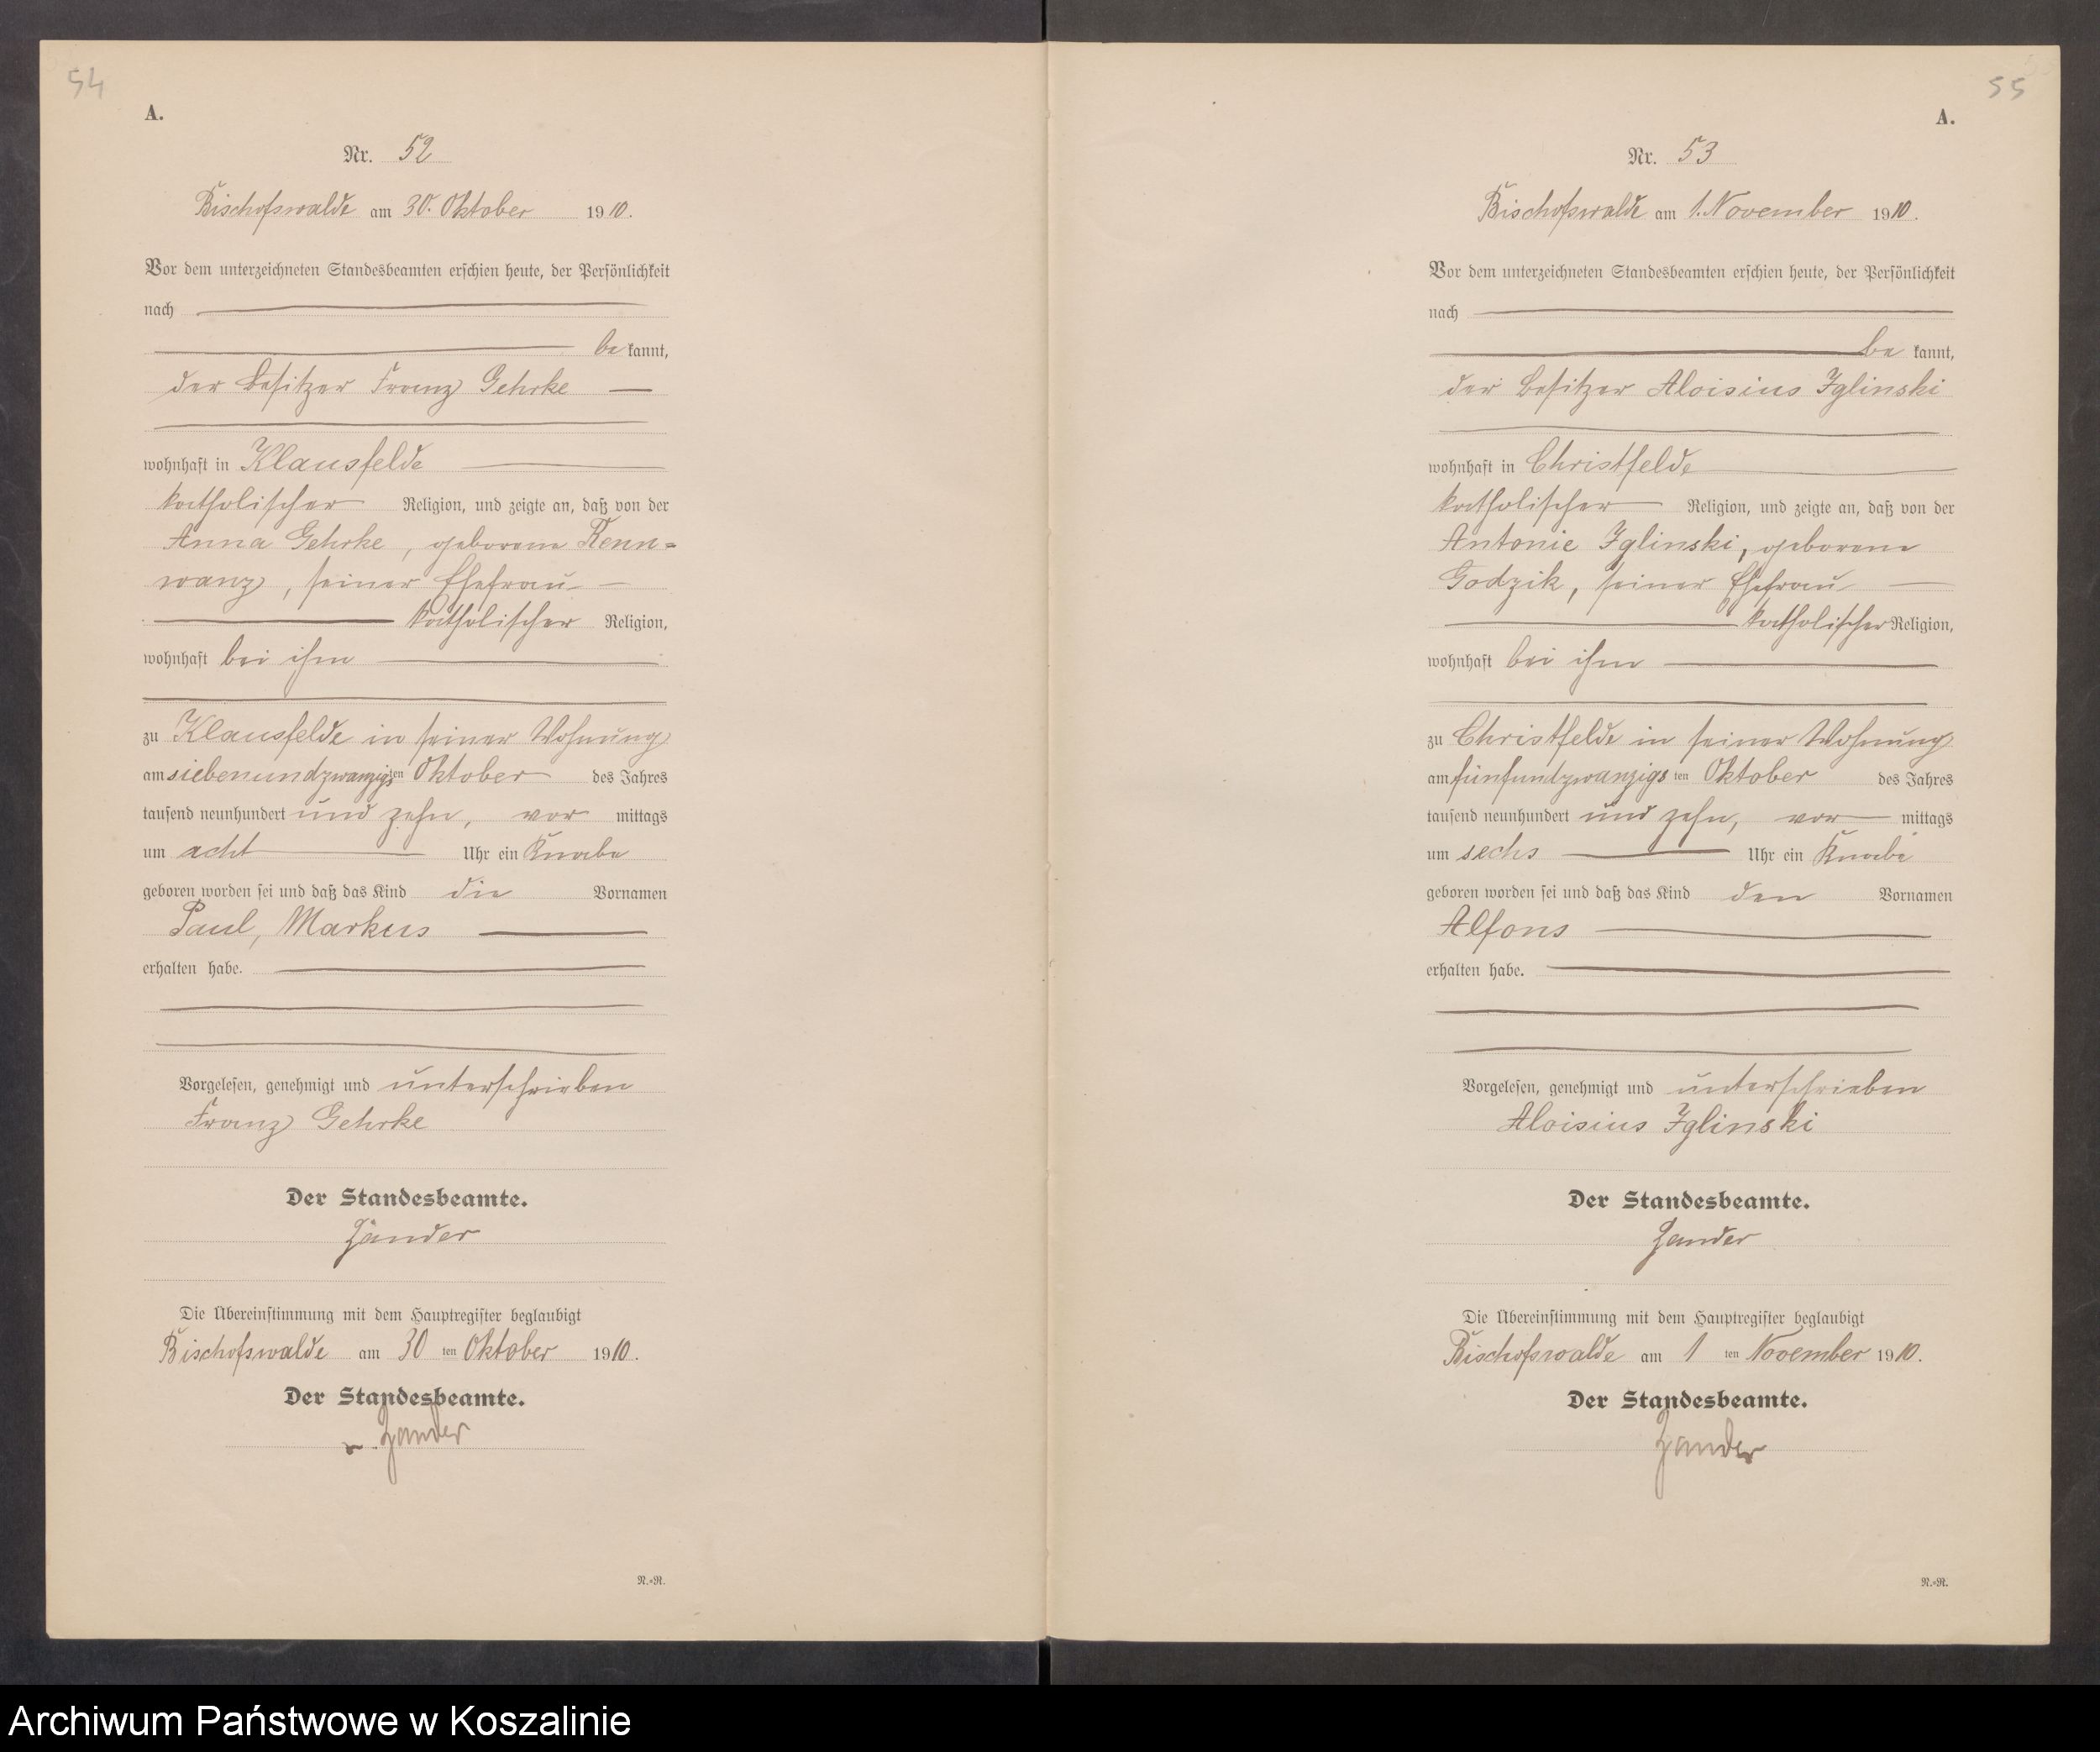 54
A.
Nr. 52
Bischofswalde am 30. Oktober 1910.
Vor dem unterzeichneten Standesbeamten erschien heute, der Persönlichkeit
nach
be kannt,
der Besitzer Franz Gehrke
wohnhaft in Klausfelde
katholischer Religion, und zeigte an, daß von der
Anna Gehrke, geborene Renn=
wanz, seiner Ehefrau
katholischer Religion,
wohnhaft bei ihm
zu Klausfelde in seiner Wohnung
am siebenundzwanzigsten Oktober des Jahres
tausend neunhundert und zehn, vor mittags
um acht Uhr ein Knabe
geboren worden sei und daß das Kind die Vornamen
Paul, Markus
erhalten habe.
Vorgelesen, genehmigt und unterschrieben
Franz Gehrke
Der Standesbeamte.
Zander
Die Übereinstimmung mit dem Hauptregister beglaubigt
Bischofswalde am 30 ten Oktober 1910.
Der Standesbeamte.
Zander
N.=R.
55
A.
Nr. 53
Bischofswalde am 1. November 1910.
Vor dem unterzeichneten Standesbeamten erschien heute, der Persönlichkeit
nach
be kannt,
der Besitzer Aloisius Iglinski
wohnhaft in Christfelde
katholischer Religion, und zeigte an, daß von der
Antonie Iglinski, geborene
Godzik, seiner Ehefrau
katholischer Religion,
wohnhaft bei ihm
zu Christfelde in seiner Wohnung
am fünfundzwanzigs ten Oktober des Jahres
tausend neunhundert und zehn, vor mittags
um sechs Uhr ein Knabe
geboren worden sei und daß das Kind den Vornamen
Alfons
erhalten habe.
Vorgelesen, genehmigt und unterschrieben
Aloisius Iglinski
Der Standesbeamte.
Zander
Die Übereinstimmung mit dem Hauptregister beglaubigt
Bischofswalde am 1 ten November 1910.
Der Standesbeamte.
Zander
N.=R.
Archiwum Państwowe w Koszalinie